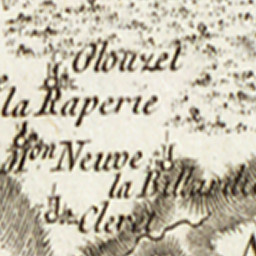 Olouzel
la Raperie
Mon Neuve
la Billardie
Cleret